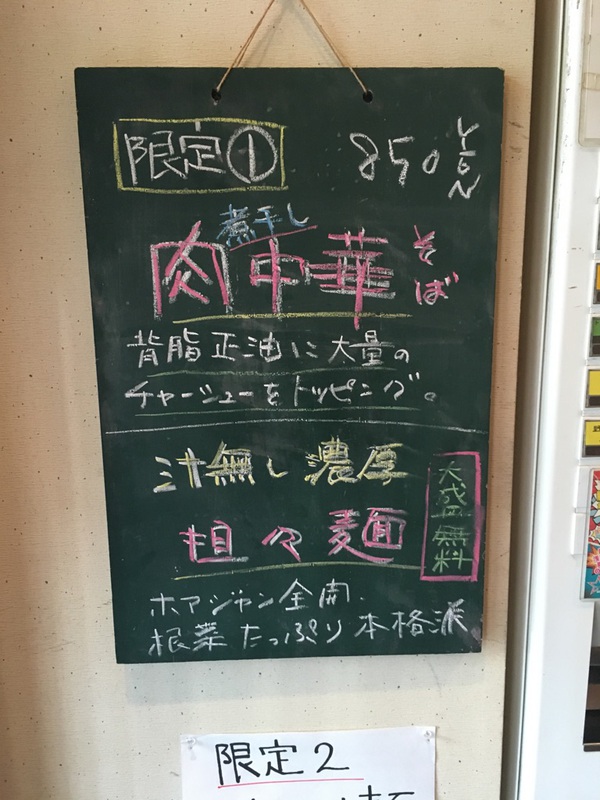 限定①
850 YEN
煮干し
肉中華そば
背脂正油に大量の
チャーシューをトッピング。
汁無し濃厚
担々麺
大盛無料
ホアジャン全開.
根菜たっぷり本格派
限定2